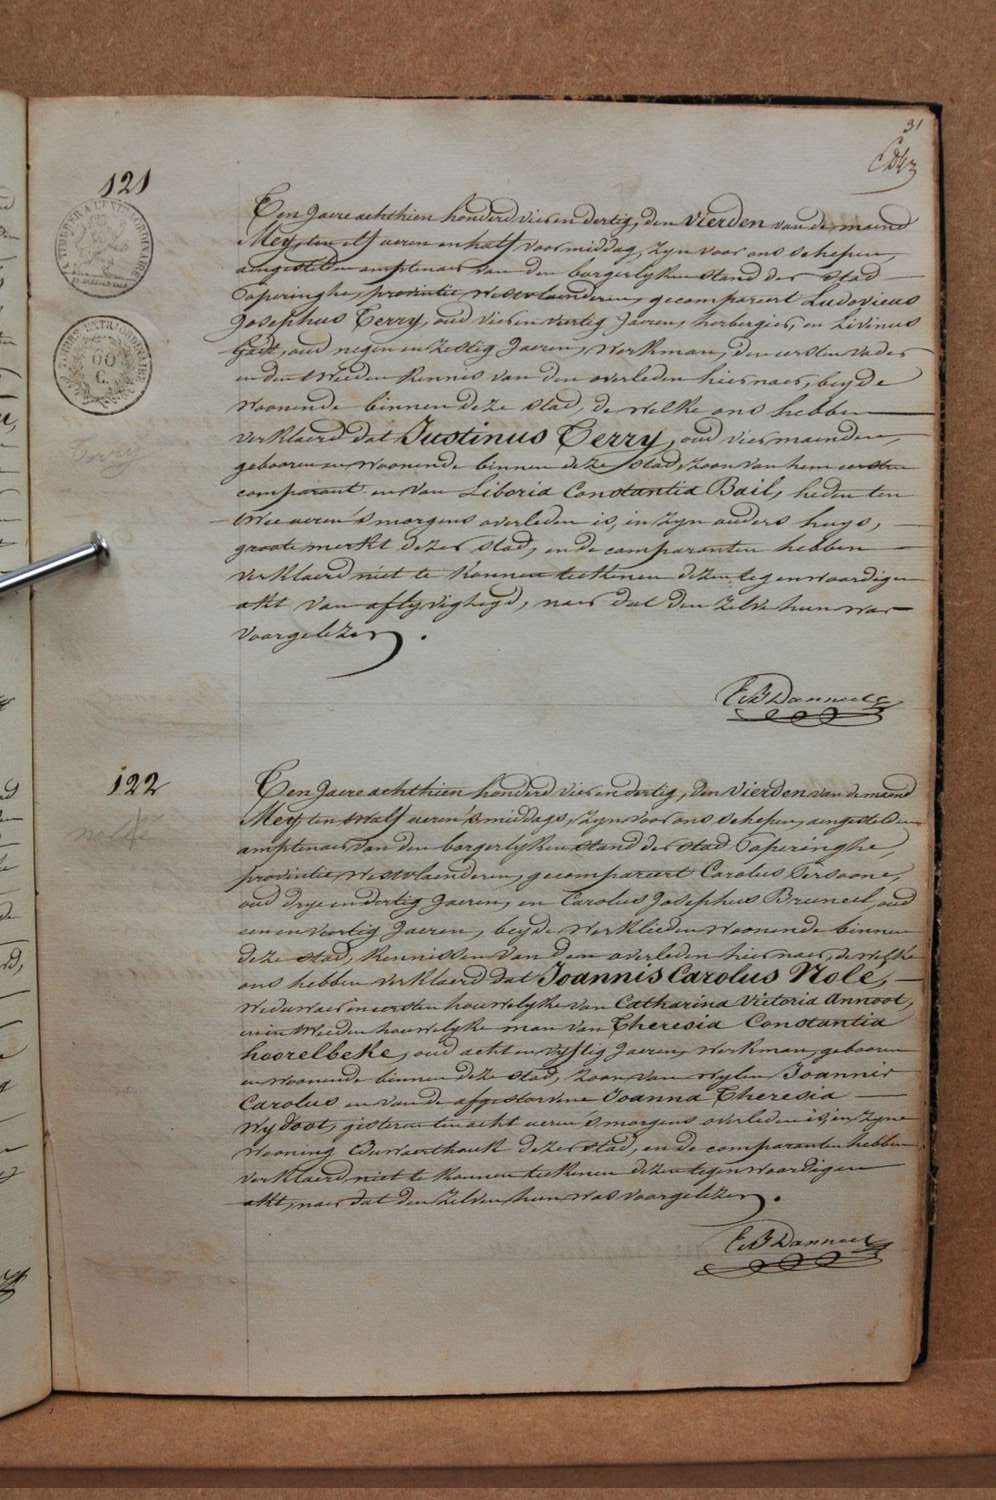 31
121
Ten Jaere achthien honderd vier en dertig, den vierden van de maend
Mey, ten elf ueren en half voormiddag, zyn voor ons schepen,
aengestelden amptenaer van den borgerlyken stand der stad
Poperinghe, provintie Westvlaenderen, gecompareert Ludovicus
Josephus Terry, oud vier en veertig Jaeren, herbergier, en Livinus
oud negen en zestig Jaeren, Werkman, den eersten vader
en den tweeden kennis van den overleden hiernaer, beyde
woonende binnen deze stad, de welke ons hebben
verklaerd dat Justinus Terry, oud vier maenden,
gebooren en woonende binnen deze stad, zoon van hem eersten
comparant en van Liboria Constantia Bail, heden ten
twee ueren 's morgens overleden is, in zyn ouders huys,
groote merkt dezer stad, en de comparanten hebben
verklaerd niet te konnen teekenen dezen tegenwoordigen
akt van aflyvigheyd, naer dat den zelven hun was
voorgelezen.
122
Ten Jaere achthien honderd vier en dertig, den vierden van de maend
Mey, ten half ueren 's middags, zyn voor ons schepen, aengestelden
amptenaer van den borgerlyken stand der stad Poperinghe,
provintie Westvlaenderen, gecompareert Carolus Persoone,
oud drye en dertig Jaeren, en Carolus Josephus Bruneel, oud
een en veertig Jaeren, beyde Werklieden woonende binnen
deze stad, kennissen van den overleden hier naer, de welke
ons hebben verklaerd dat Joannis Carolus Nole,
Weduwaer in eersten houwelyke van Catharina Victoria Annoot,
en in tweeden houwelyke man van Theresia Constantia
hoorelbeke, oud acht en vyftig Jaeren, Werkman, gebooren
en woonende binnen deze stad, zoon van wylen Joannis
Carolus en van de afgestorvene Joanna Theresia
Wydoot, gisteren ten acht ueren 's morgens overleden is, in zyne
wooning dezer stad, en de comparanten hebben
verklaerd niet te konnen teekenen dezen tegenwoordigen
akt, naer dat den zelven hun was voorgelezen.